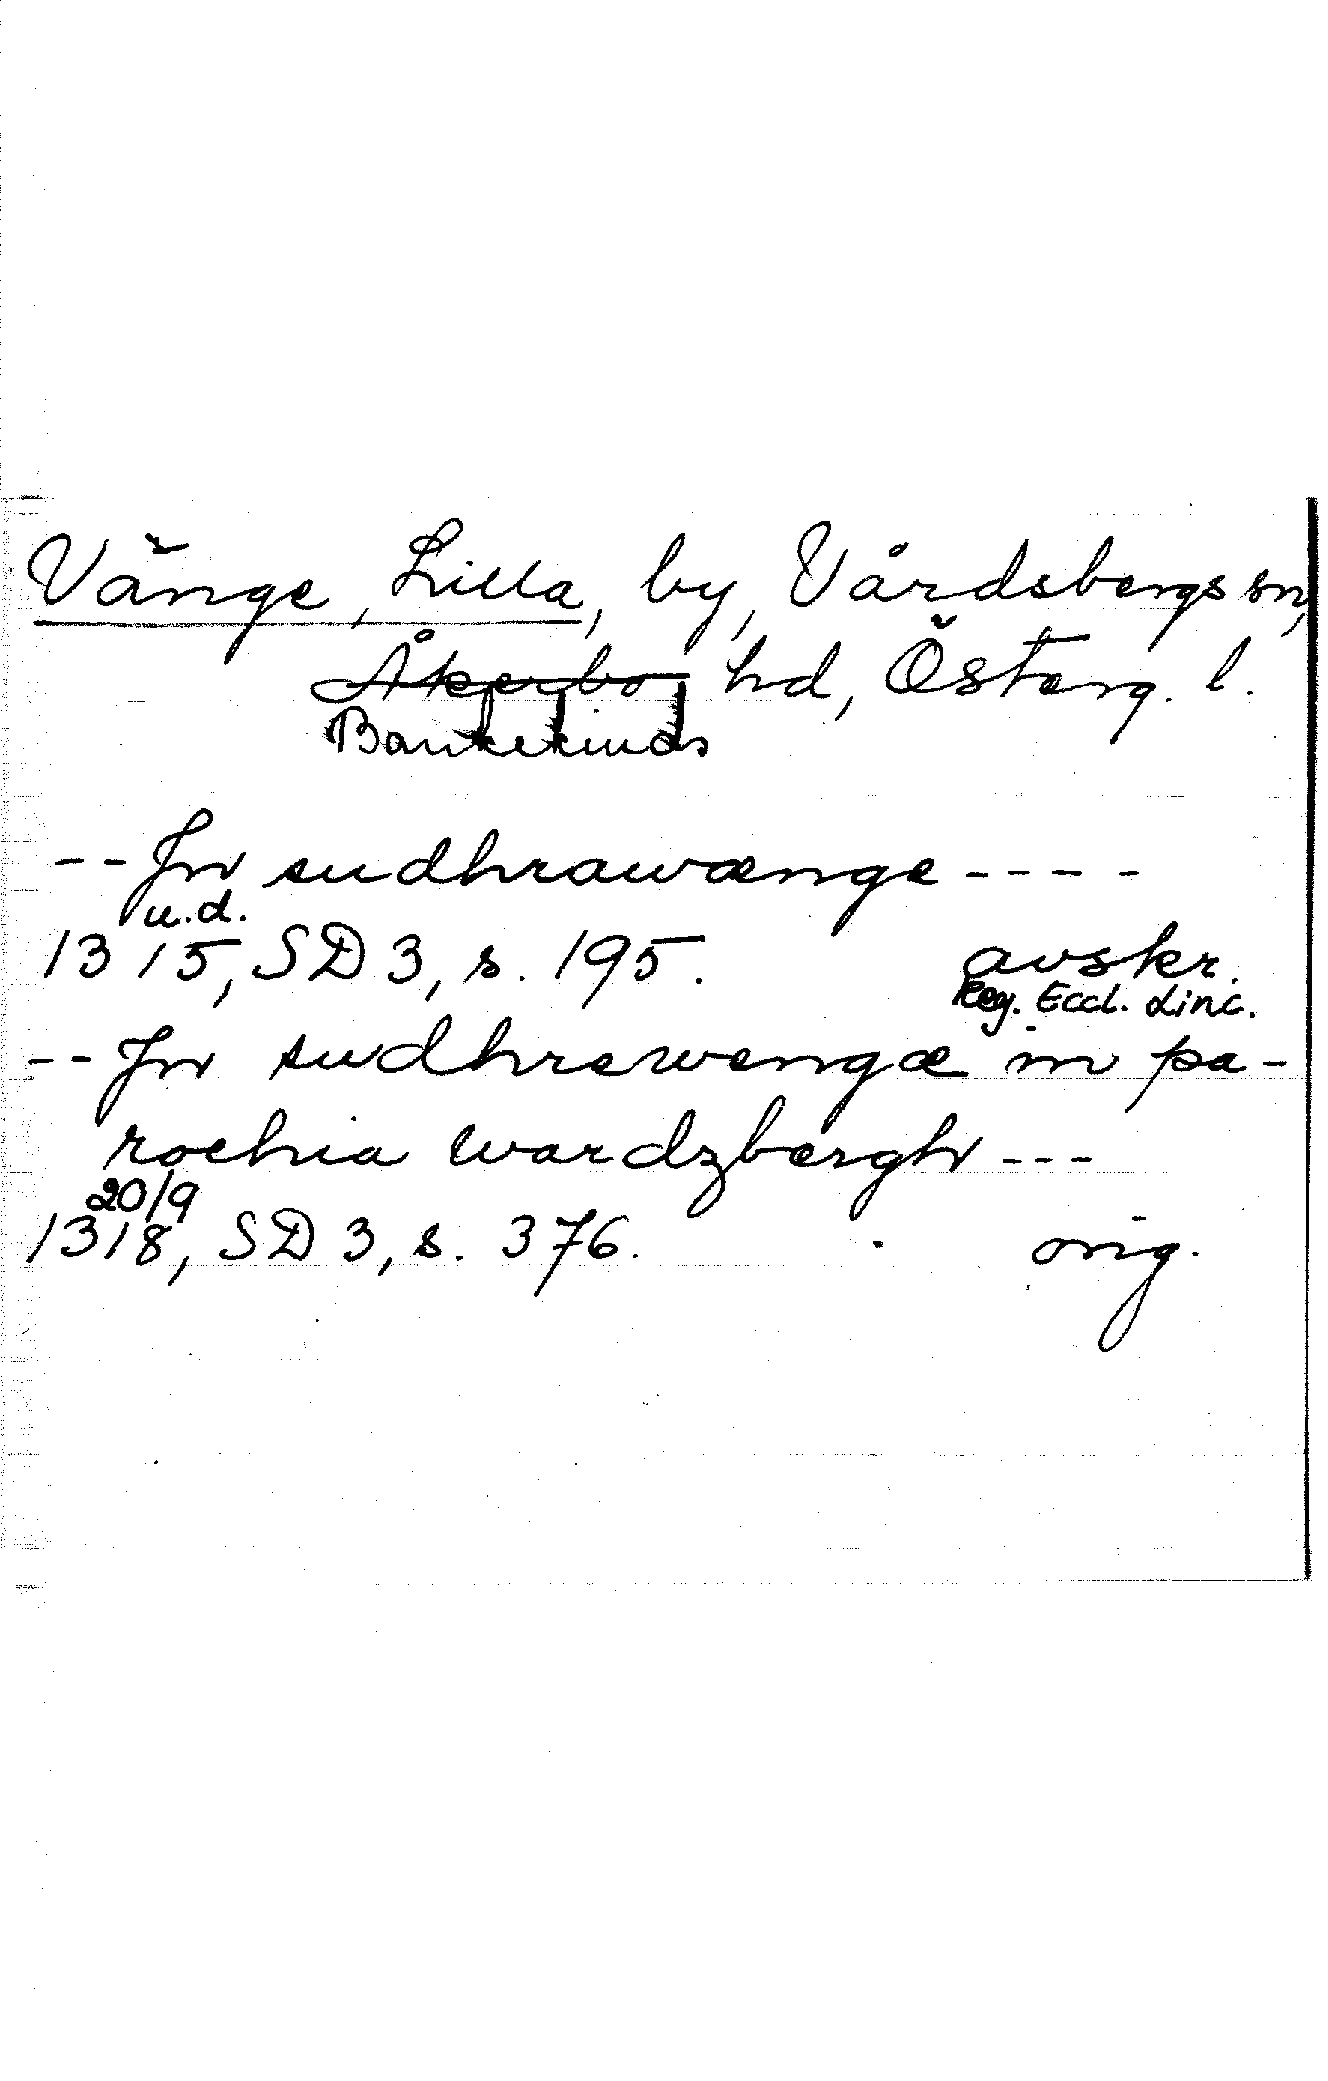 Vänge, Lilla, by, Vårdsbergs sn,
Åkerbo hd, Österg. l.
Bankekinds
-- Jn sudhrawænge ----
u.d.
1315, SD 3, s. 195. avskr.
Reg. Eccl. Linc.
-- Jn sudhrewengæ in pa-
rochia wardzbergh ---
20/9
1318, SD 3, s. 376. orig.